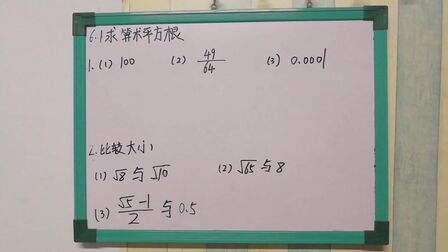 6.1求算术平方根
1. (1) 100 (2) 49/64 (3) 0.0001
2. 比较大小:
(1) √8 与 √10 (2) √65 与 8
(3) (√5 -1)/2 与 0.5